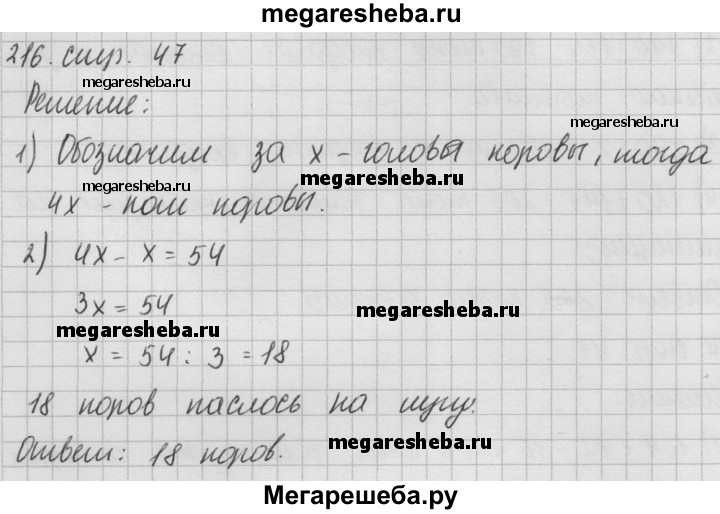 megaresheba.ru
216. стр. 47
megaresheba.ru
Решение:
megaresheba.ru
1) Обозначим за x - головы коровы, тогда
megaresheba.ru
megaresheba.ru
4x - ног коровы.
2) 4x - x = 54
megaresheba.ru
3x = 54
megaresheba.ru
x = 54 : 3 = 18
18 коров паслось на лугу.
megaresheba.ru
Ответ: 18 коров.
Мегарешеба.ру